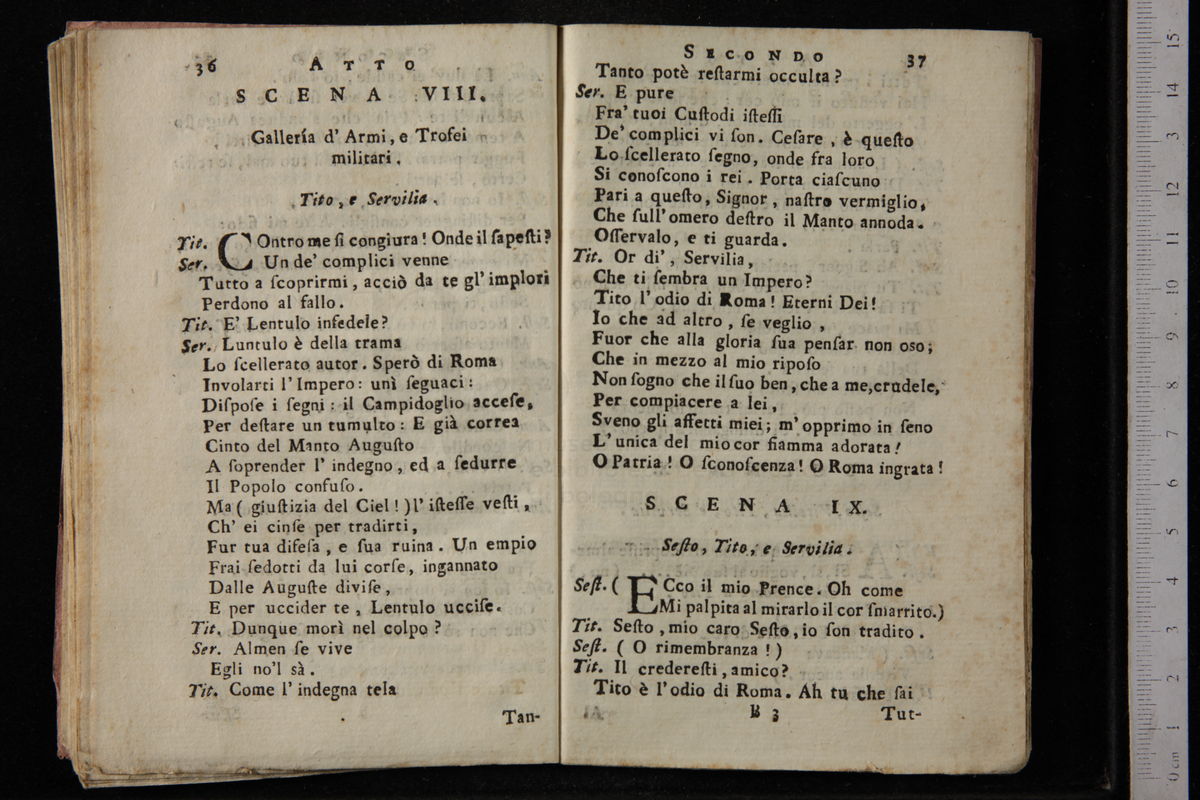 36 ATTO
SCENA VIII.
Gallería d' Armi, e Trofei
militari.
Tito, e Servilia.
Tit. COntro me ſi congiura! Onde il ſapeſti?
Ser. Un de' complici venne
Tutto a ſcoprirmi, acciò da te gl' implori
Perdono al fallo.
Tit. E' Lentulo infedele?
Ser. Luntulo è della trama
Lo ſcellerato autor. Sperò di Roma
Involarti l' Impero: unì ſeguaci:
Diſpoſe i ſegni: il Campidoglio acceſe,
Per deſtare un tumulto: E già correa
Cinto del Manto Auguſto
A ſoprender l' indegno, ed a ſedurre
Il Popolo confuſo.
Ma ( giuſtizia del Ciel! ) l' iſteſſe veſti,
Ch' ei cinſe per tradirti,
Fur tua difeſa, e ſua ruina. Un empio
Frai ſedotti da lui corſe, ingannato
Dalle Auguſte diviſe,
E per uccider te, Lentulo ucciſe.
Tit. Dunque morì nel colpo?
Ser. Almen ſe vive
Egli no'l sà.
Tit. Come l' indegna tela
Tan-
SECONDO 37
Tanto potè reſtarmi occulta?
Ser. E pure
Fra' tuoi Cuſtodi iſteſſi
De' complici vi ſon. Ceſare, è queſto
Lo ſcellerato ſegno, onde fra loro
Si conoſcono i rei. Porta ciaſcuno
Pari a queſto, Signor, naſtro vermiglio,
Che full' omero deſtro il Manto annoda.
Oſſervalo, e ti guarda.
Tit. Or di', Servilia,
Che ti ſembra un Impero?
Tito l' odio di Roma! Eterni Dei!
Io che ad altro, ſe veglio,
Fuor che alla gloria ſua penſar non oso;
Che in mezzo al mio ripoſo
Non ſogno che il ſuo ben, che a me, crudele,
Per compiacere a lei,
Sveno gli affetti miei; m' opprimo in ſeno
L' unica del mio cor fiamma adorata!
O Patria! O ſconoſcenza! O Roma ingrata!
SCENA IX.
Seſto, Tito, e Servilia.
Seſt. ( ECco il mio Prence. Oh come
Mi palpita al mirarlo il cor ſmarrito.)
Tit. Seſto, mio caro Seſto, io ſon tradito.
Seſt. ( O rimembranza! )
Tit. Il crederesti, amico?
Tito è l'odio di Roma. Ah tu che ſai
B 3 Tut-